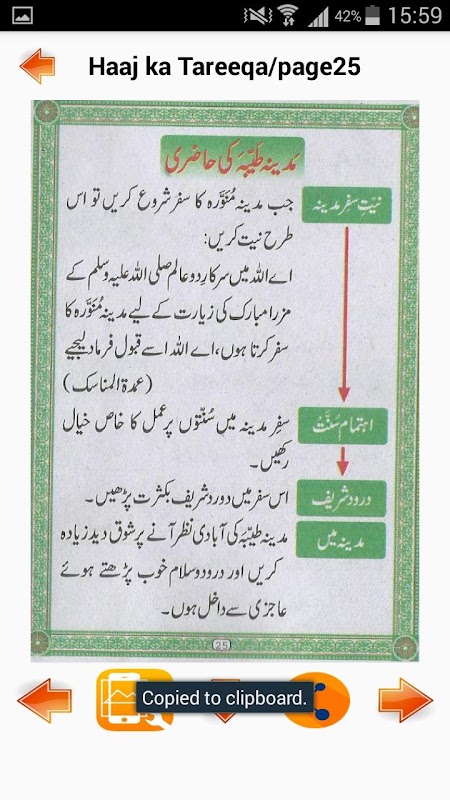 42% 15:59
Haaj ka Tareeqa/page25
مدینہ طیّبہ کی حاضری
نیّتِ سفرِ مدینہ
جب مدینہ مُنَوَّرہ کا سفر شروع کریں تو اس
طرح نیت کریں:
اے اللہ میں سرکارِ دو عالم صلی اللہ علیہ وسلم کے
مزرا مبارک کی زیارت کے لیے مدینہ مُنَوَّرہ کا
سفر کرتا ہوں، اے اللہ اسے قبول فرما دیجیے
(عمدۃ المناسک)
اہتمام سُنَّتْ
سفرِ مدینہ میں سنّتوں پر عمل کا خاص خیال
رکھیں۔
درود شریف
اس سفر میں دورد شریف بکثرت پڑھیں۔
مدینہ میں
مدینہ طیّبہ کی آبادی نظر آنے پر شوق دید زیادہ
کریں اور درود و سلام خوب پڑھتے ہوئے
عاجزی سے داخل ہوں۔
25
Copied to clipboard.